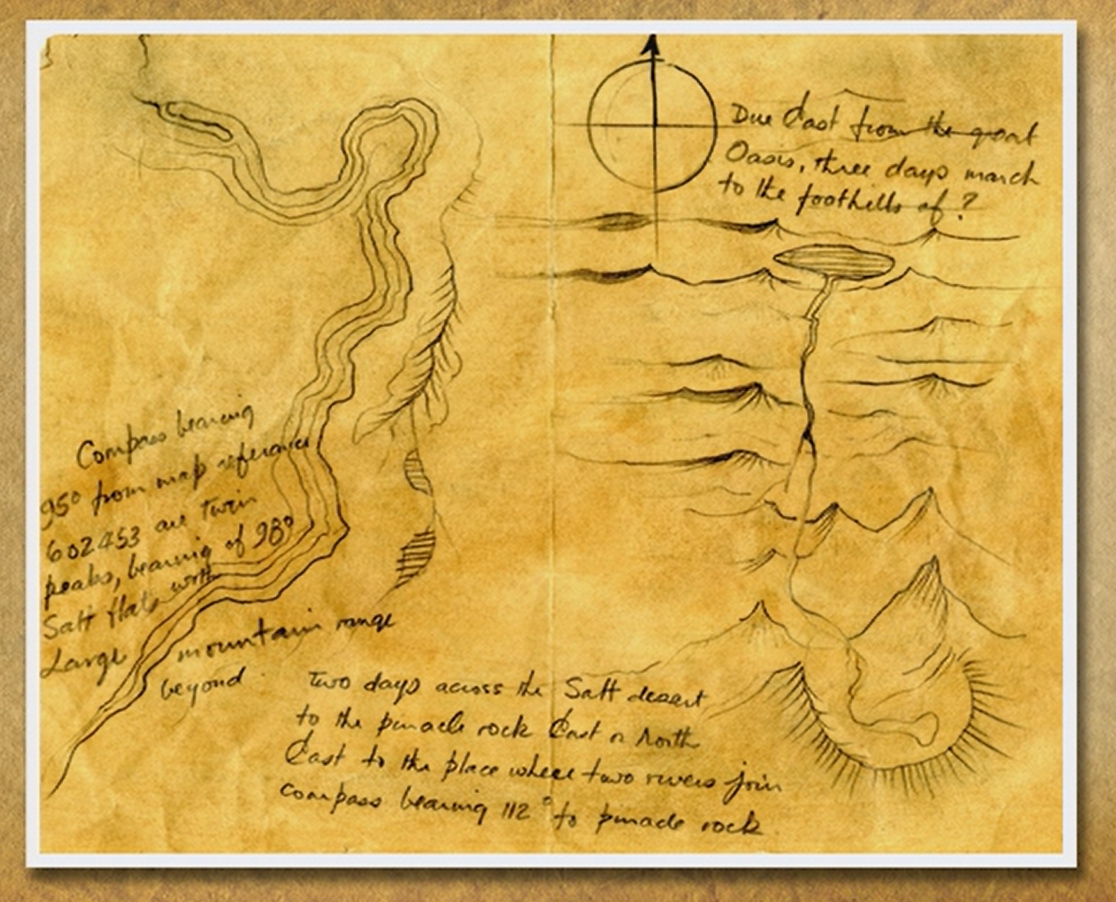 Due East from the great
Oasis, three days march
to the foothills of ?
Compass bearing
95° from map reference
602453 are twin
peaks, bearing of 98°
Salt flats with
Large mountain range
beyond
Two days across the Salt desert
to the pinacle rock East or North
East to the place where two rivers join
compass bearing 112° to pinacle rock